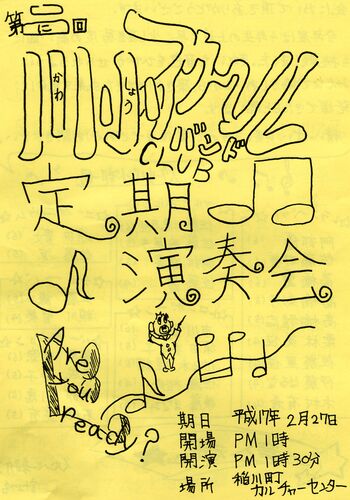 第二回
に
川小スクール
かわ しょう
バンド
CLUB
定期
演奏会
Are
you
ready?
期日 平成17年 2月27日
開場 PM 1時
開演 PM 1時30分
場所 稲川町
カルチャーセンター